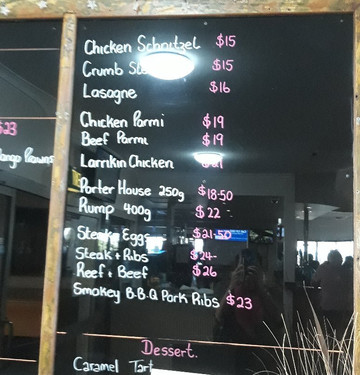 Chicken Schnitzel $15
Crumb $15
Lasagne $16
Chicken Parmi $19
Beef Parmi $19
Larrikin Chicken
Porter House 250g $18.50
Rump 400g $22
Steak Eggs $21.50
Steak + Ribs $24
Reef + Beef $26
Smokey B.B.Q Pork Ribs $23
Dessert.
Caramel Tart
$23
Mango Prawns